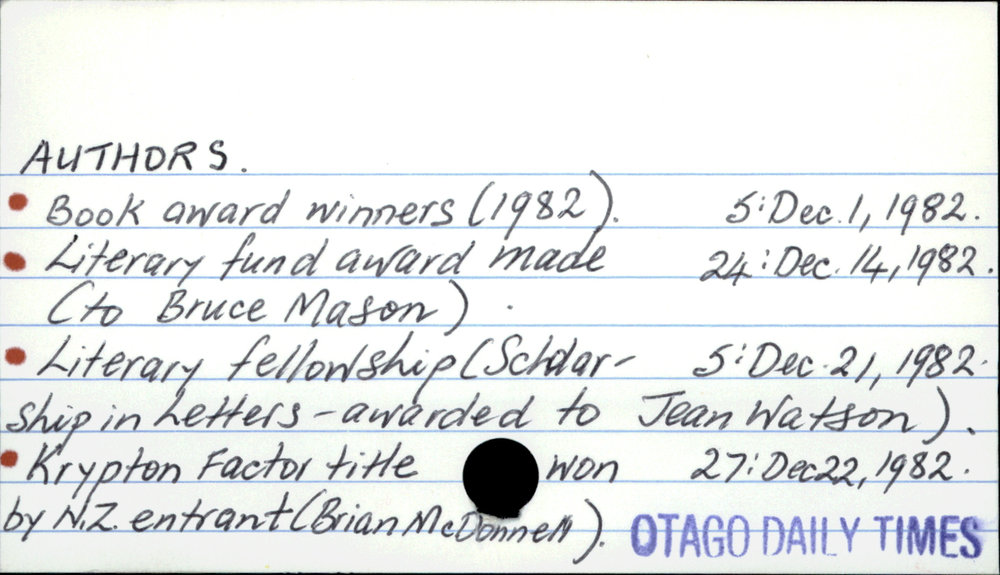 AUTHORS.
• Book award winners (1982). 5: Dec. 1, 1982.
• Literary fund award made 24: Dec. 14, 1982.
(to Bruce Mason).
• Literary fellowship (Scholar- 5: Dec. 21, 1982.
ship in Letters - awarded to Jean Watson).
• Krypton Factor title won 27: Dec 22, 1982.
by N.Z. entrant (Brian McDonnell).
OTAGO DAILY TIMES